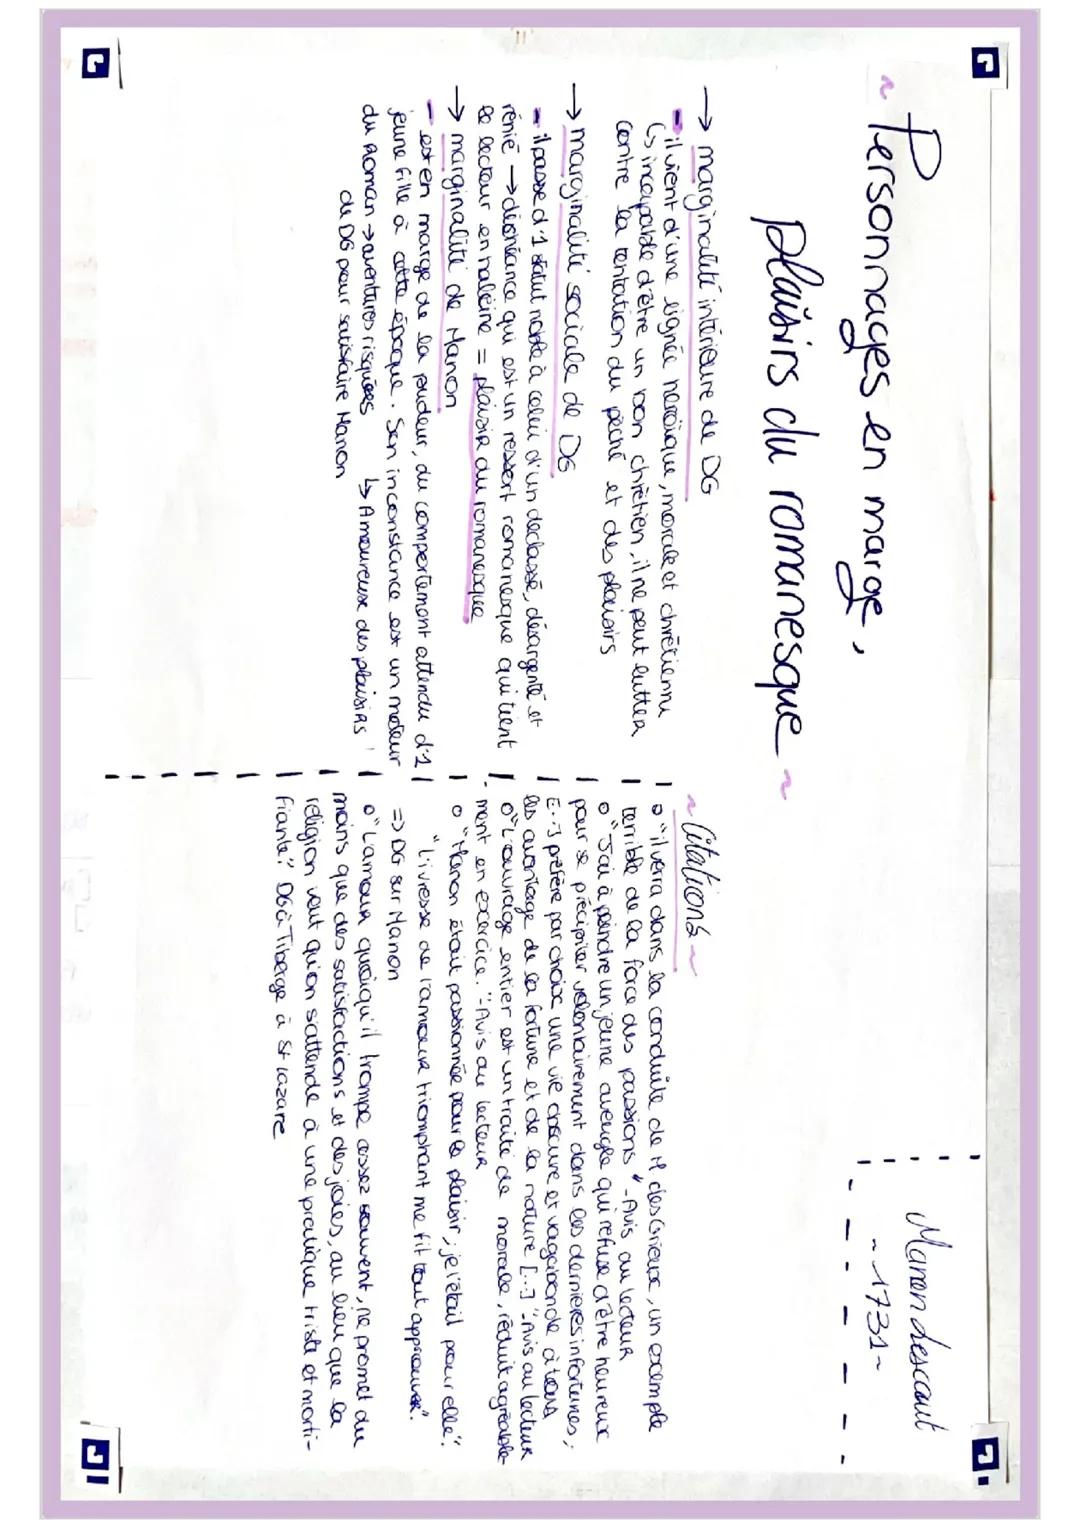 ~ Personnages en marge,
plaisirs du romanesque ~
Manon Lescaut
~ 1731 ~
→ marginalité intérieure de DG
- il vient d'une lignée héroïque, morale et chrétienne
↳ incapable d'être un bon chrétien, il ne peut lutter
contre la tentation du péché et des plaisirs
→ marginalité sociale de DG
- il passe d'1 statut noble à celui d'un déclassé, désargenté et
rénié → déchéance qui est un ressort romanesque qui tient
le lecteur en haleine = plaisir du romanesque
→ marginalité de Manon
- est en marge de la pudeur, du comportement attendu d'1
jeune fille à cette époque. Son inconstance est un moteur
du roman → aventures risquées ↳ Amoureuse des plaisirs
de DG pour satisfaire Manon
~ Citations ~
o "il verra dans la conduite de M des Grieux, un exemple
terrible de la force des passions" - Avis au lecteur
o "J'ai à peindre un jeune aveugle qui refuse d'être heureux
pour se précipiter volontairement dans les dernieres infortunes,
[...] préfère par choix une vie obscure et vagabonde à tous
les avantage de la fortune et de la nature [...]" - Avis au lecteur
o "L'ouvrage entier est un traité de morale, réduit agréable-
ment en excercice." - Avis au lecteur
o "Manon était passionnée pour le plaisir ; je l'étail pour elle".
"L'ivresse de l'amour triomphant me fit tout approuver".
=> DG sur Manon
o "L'amour quoiqu'il trompe assez souvent, ne promet du
moins que des satisfactions et des joies, au lieu que la
réligion veut qu'on s'attende à une pratique triste et morti-
fiante." DG à Tiberge à St Lazare